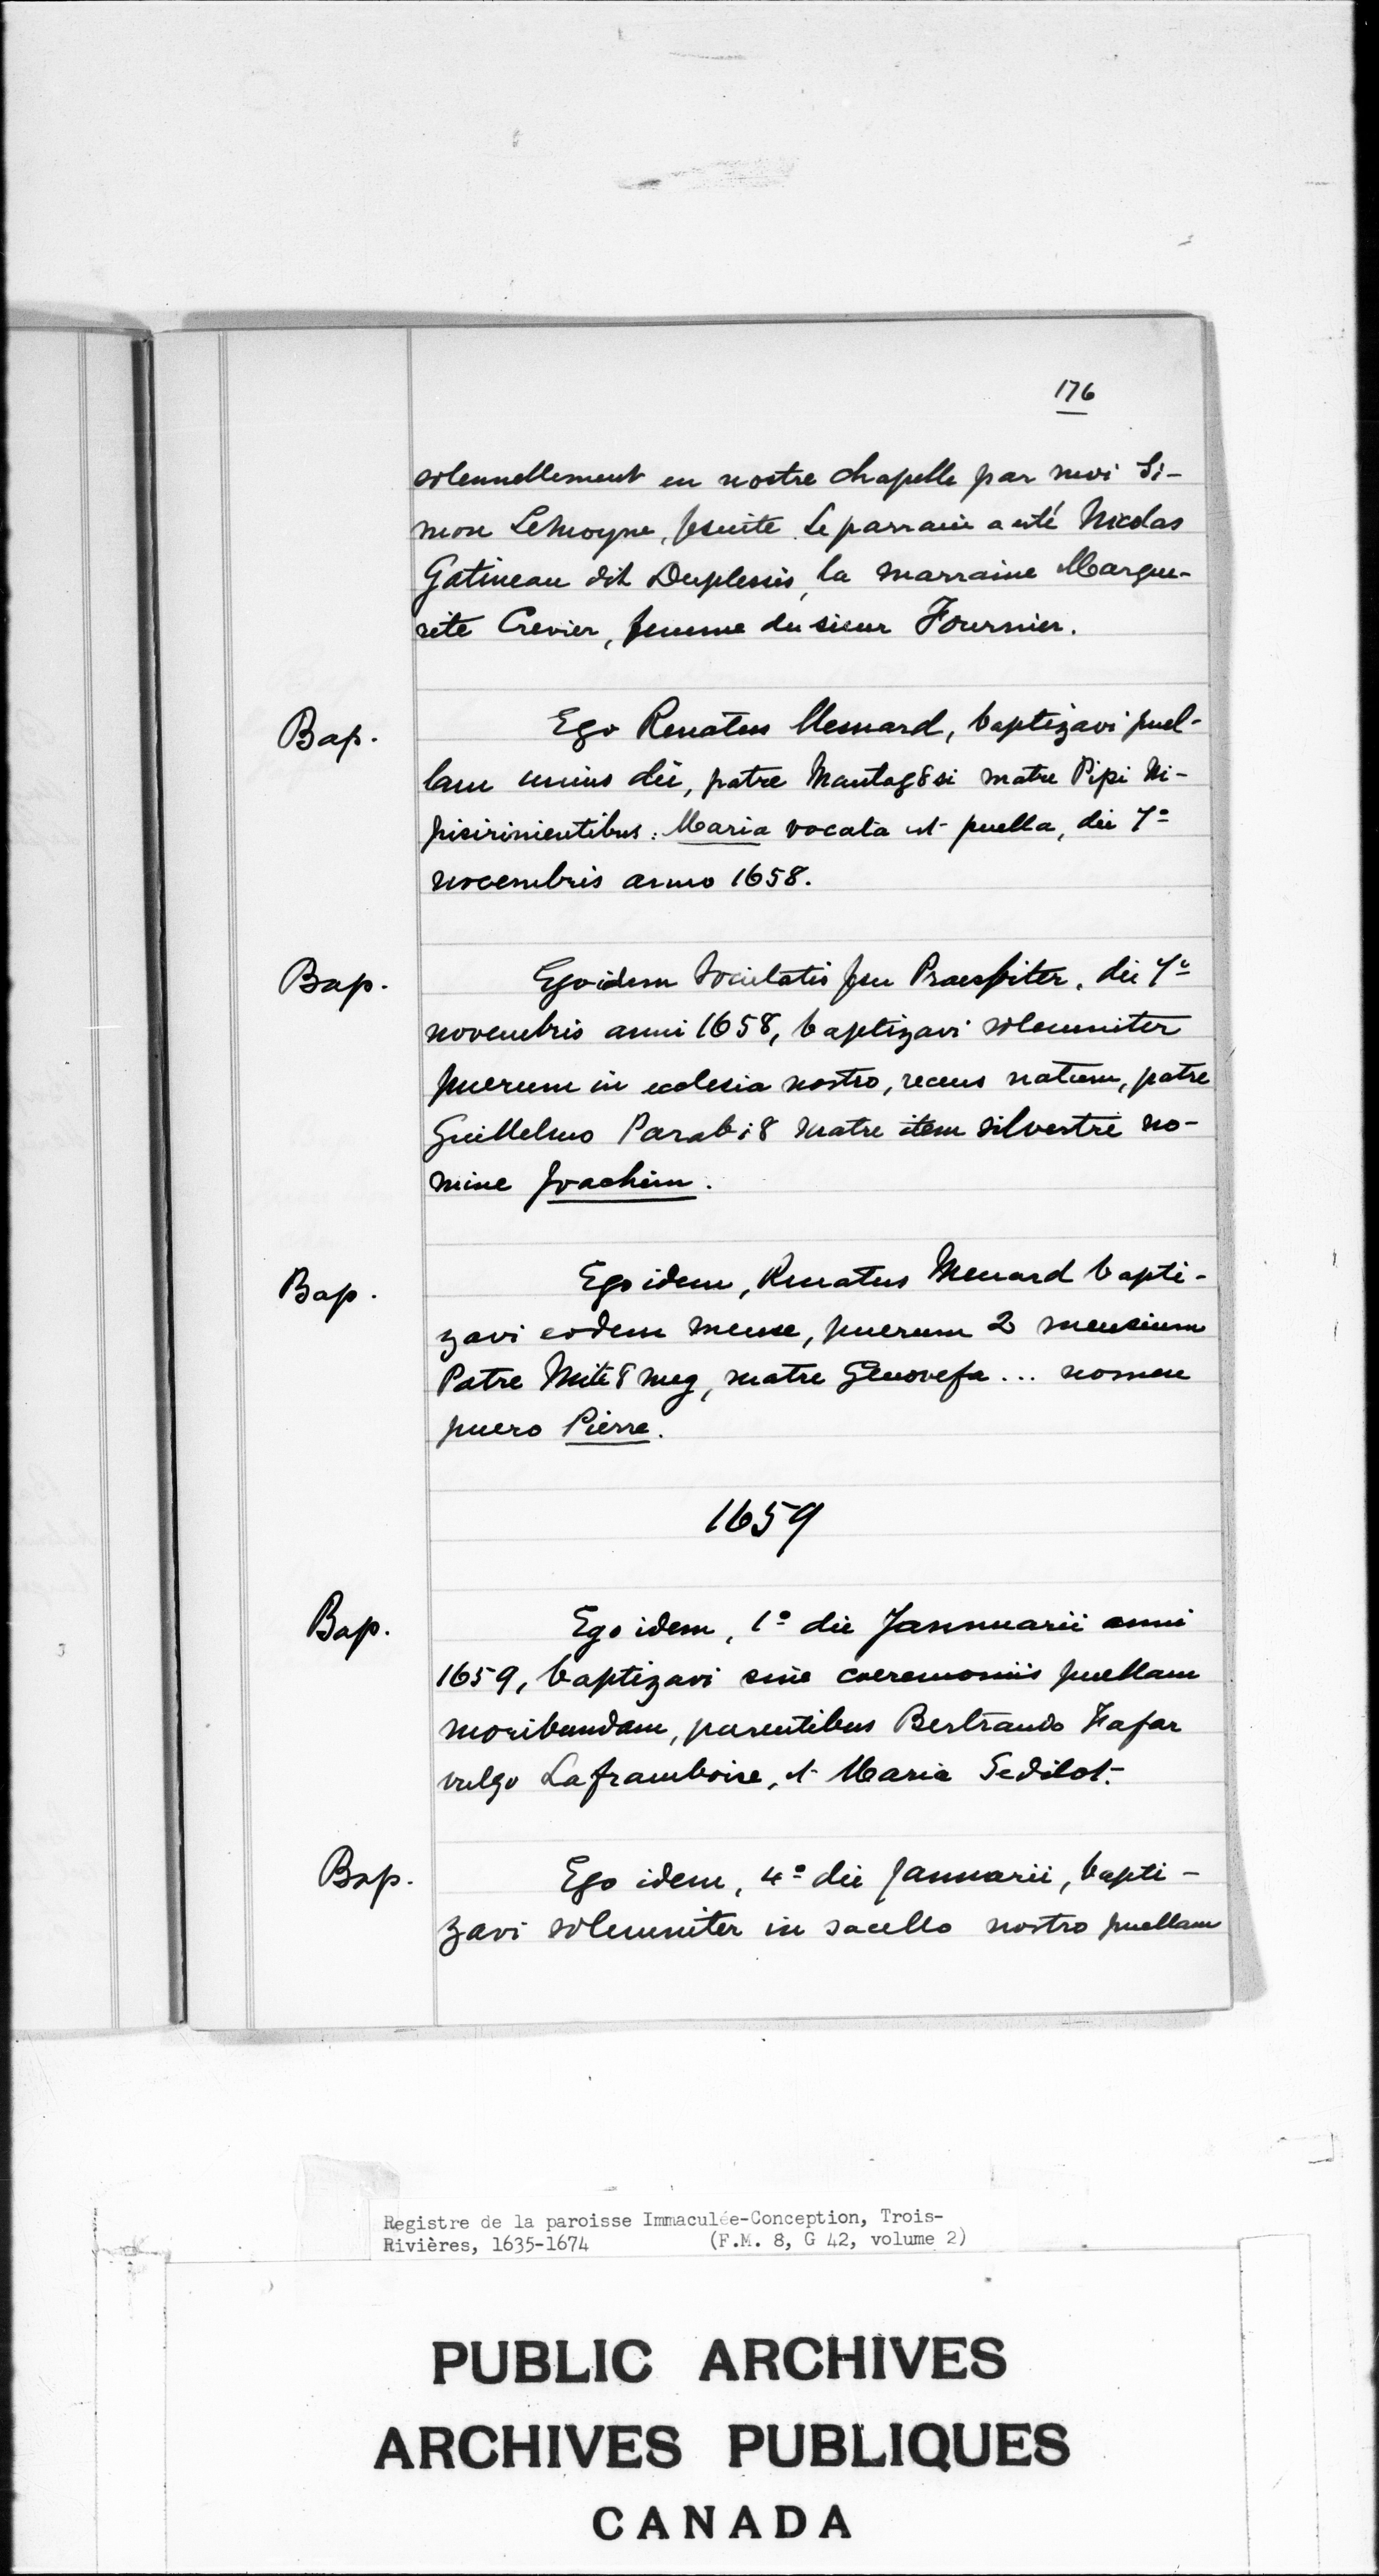 176
solennellement en nostre chapelle par moi Si-
mon LeMoyne, Jesuite. Le parrain a esté Nicolas
Gatineau dit Duplessis, la marraine Margue-
rite Crevier, femme du sieur Fournier.
Bap. Ego Renatus Menard, baptizavi puel-
lam unius diei, patre Mantag8si matre Pipi Ni-
pisirinientibus: Maria vocata est puella, die 7º
novembris anno 1658.
Bap. Ego idem Societatis Jesu Praesbiter, die 7º
novembris anni 1658, baptizavi solemniter
puerum in ecclesia nostro, recens natum, patre
Guillelmo Parabi8 matre item silvestri no-
mine Joachim.
Bap. Ego idem, Renatus Menard bapti-
zavi eodem mense, puerum 2 mensium
Patre Miti8meg, matre Genovefa... nomen
puero Pierre.
1659
Bap. Ego idem, 1º die Jannuarii anni
1659, baptizavi sine coeremoniis puellam
moribundam, parentibus Bertrando Fafar
vulgo Laframboise, et Maria Sedilot.
Bap. Ego idem, 4º die Januarii, bapti-
zavi solemniter in sacello nostro puellam
Registre de la paroisse Immaculée-Conception, Trois-
Rivières, 1635-1674 (F.M. 8, G 42, volume 2)
PUBLIC ARCHIVES
ARCHIVES PUBLIQUES
CANADA